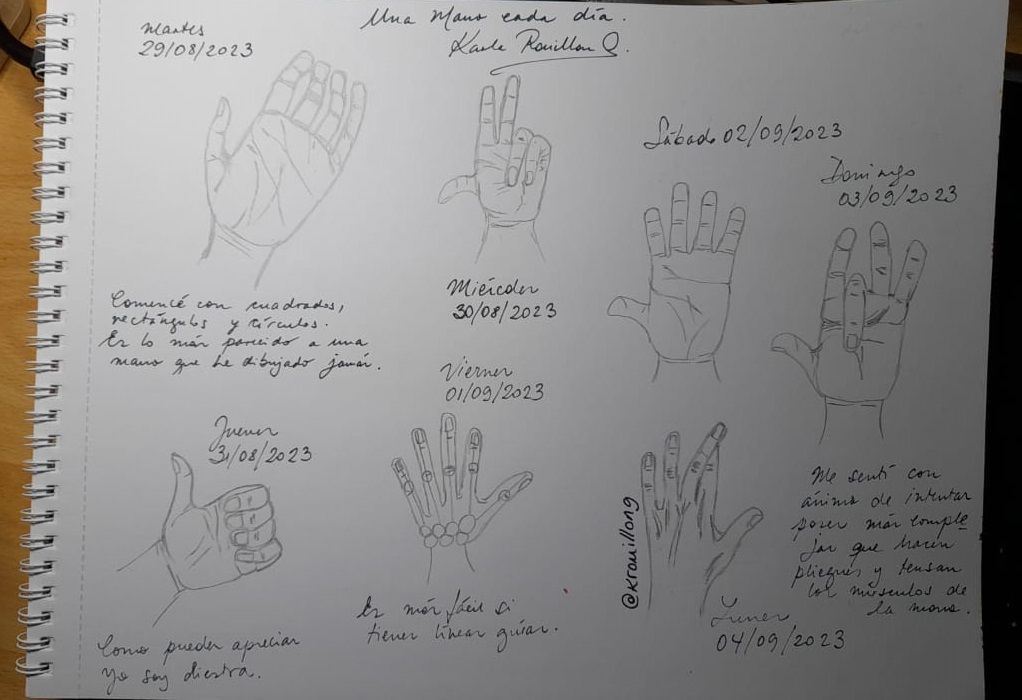 Una Mano cada día.
Karla Rouillon Q.
Martes
29/08/2023
Comencé con cuadrados,
rectángulos y círculos.
Es lo más parecido a una
mano que he dibujado jamás.
Miércoles
30/08/2023
Jueves
31/08/2023
Como pueden apreciar
yo soy diestra.
Viernes
01/09/2023
Es más fácil si
tienes líneas guías.
Sábado 02/09/2023
Domingo
03/09/2023
Me sentí con
ánimo de intentar
poses más comple
jas que hacen
pliegues y tensan
los músculos de
la mano.
@krouillong
Lunes
04/09/2023